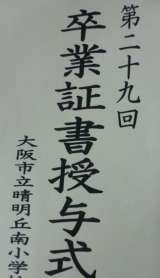 第二十九回
卒業証書授与式
大阪市立晴明丘南小学